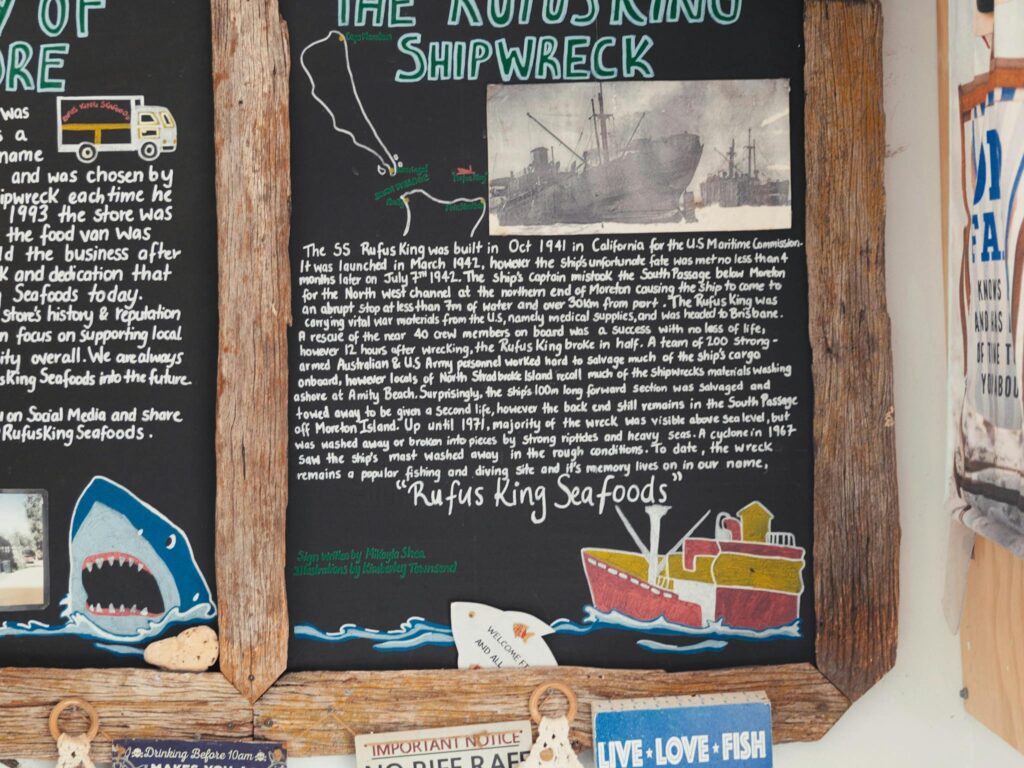 Y OF
RE
RUFUS KING SEAFOODS
was
s a
name
and was chosen by
ipwreck each time he
1993 the store was
the food van was
d the business after
k and dedication that
Seafoods today.
store's history & reputation
n focus on supporting local
ity overall. We are always
usKing Seafoods into the future.
u on Social Media and share
RufusKingSeafoods.
THE RUFUS KING
SHIPWRECK
Cape Moreton
The SS Rufus King was built in Oct 1941 in California for the U.S Maritime Commission.
It was launched in March 1942, however the ship's unfortunate fate was met no less than 4
months later on July 7TH 1942. The ship's Captain mistook the South Passage below Moreton
for the North west channel at the northern end of Moreton causing the ship to come to
an abrupt stop at less than 7m of water and over 30km from port. The Rufus King was
carrying vital war materials from the U.S, namely medical supplies, and was headed to Brisbane.
A rescue of the near 40 crew members on board was a success with no loss of life,
however 12 hours after wrecking, the Rufus King broke in half. A team of 200 strong-
armed Australian & U.S Army personnel worked hard to salvage much of the ship's cargo
onboard, however locals of North Stradbroke Island recall much of the shipwrecks materials washing
ashore at Amity Beach. Surprisingly, the ship's 100m long forward section was salvaged and
towed away to be given a second life, however the back end still remains in the South Passage
off Moreton Island. Up until 1971, majority of the wreck was visible above sea level, but
was washed away or broken into pieces by strong riptides and heavy seas. A cyclone in 1967
saw the ship's mast washed away in the rough conditions. To date, the wreck
remains a popular fishing and diving site and it's memory lives on in our name,
"Rufus King Seafoods"
Sign written by Mikayla Shea
Illustrations by Kimberley Townsend
WELCOME
AND ALL
Drinking Before 10am
MAKES YOU A
IMPORTANT NOTICE
NO RIFF RAFF
LIVE ★ LOVE ★ FISH
FA
KNOWS
AND HAS
OF
YOU